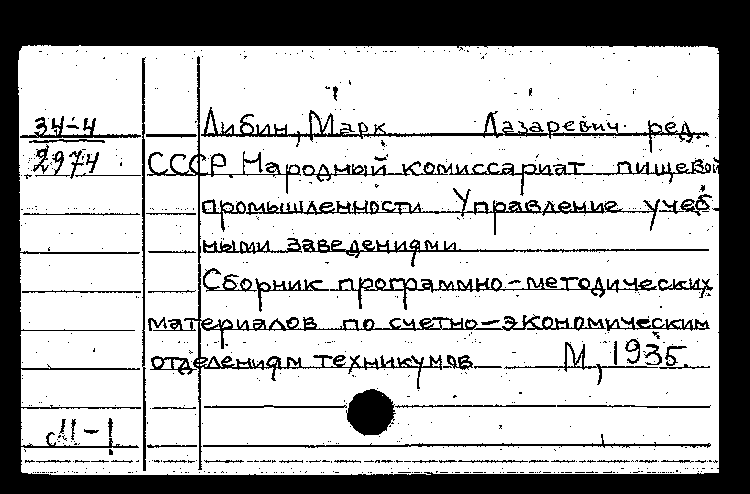 34-4 Либин, Марк Лазаревич ред.
2974 СССР. Народный комиссариат пищевой
промышленности Управление учеб-
ными заведениями
Сборник программно-методических
материалов по счетно-экономическим
отделениям техникумов М, 1935.
М-1